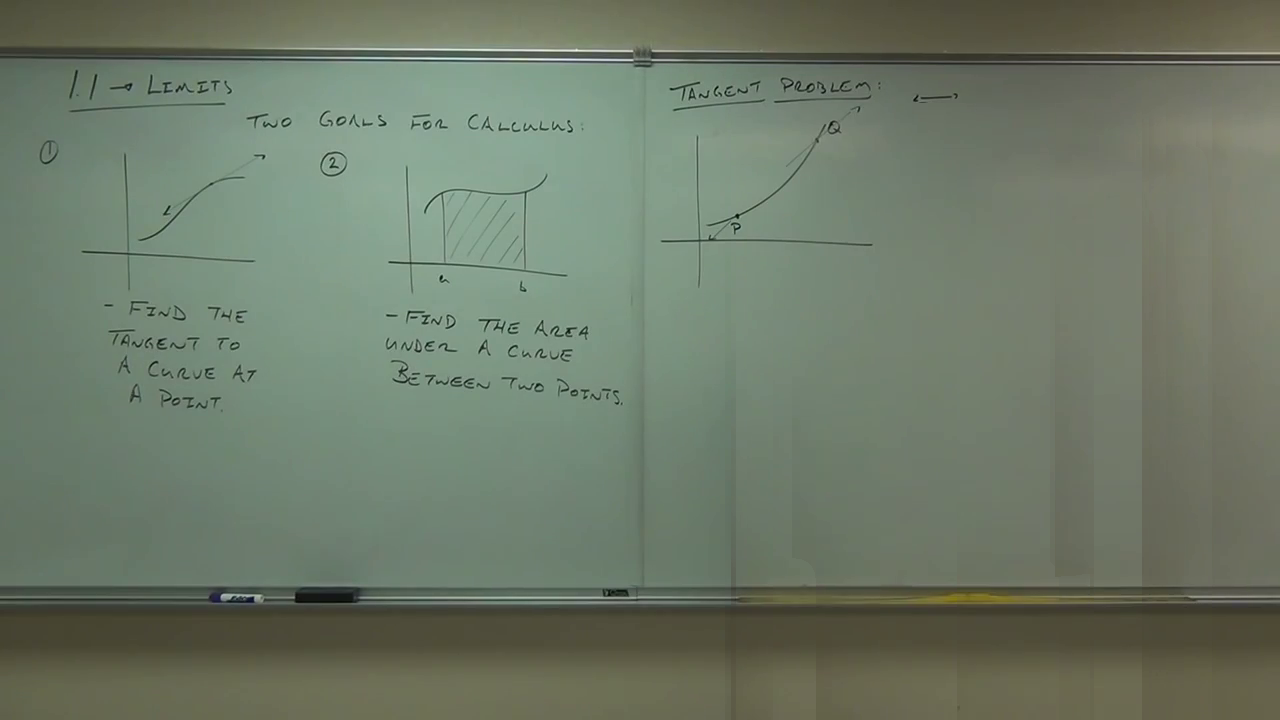 1.1 → LIMITS
TWO GOALS FOR CALCULUS:
①
②
a
b
- FIND THE
TANGENT TO
A CURVE AT
A POINT.
- FIND THE AREA
UNDER A CURVE
BETWEEN TWO POINTS.
TANGENT PROBLEM:
Q
P